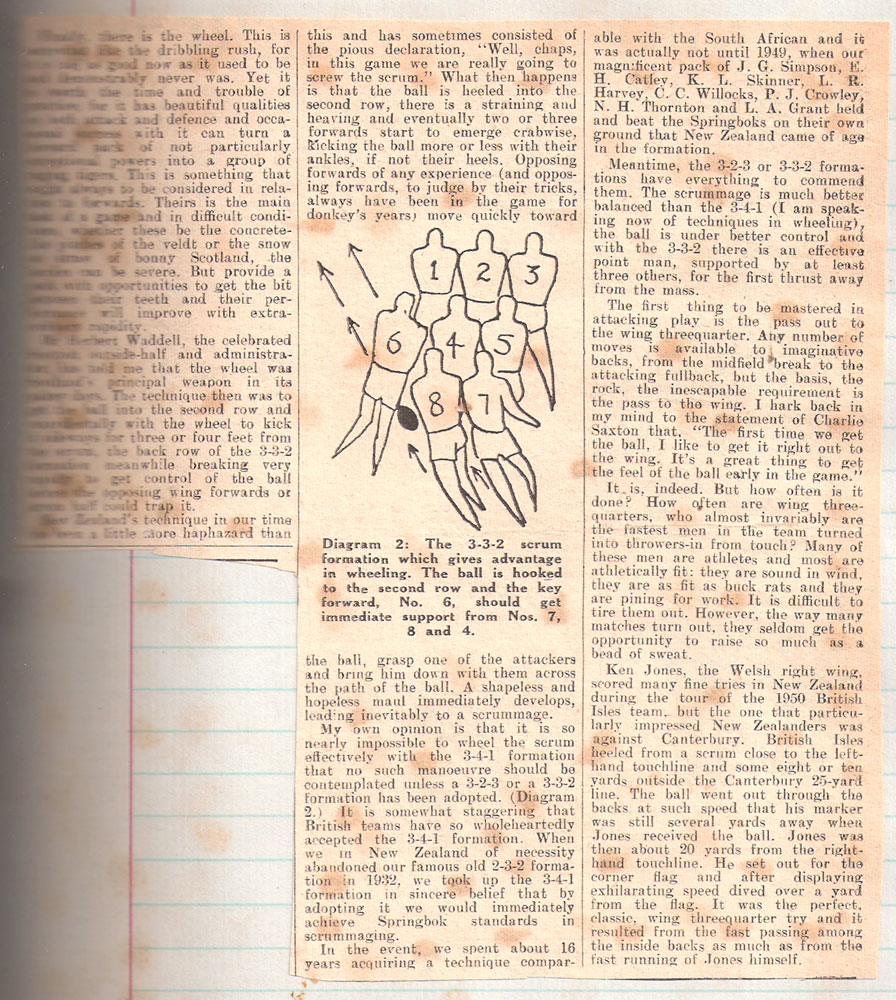 there is the wheel. This is
the dribbling rush, for
good now as it used to be
never was. Yet it
the time and trouble of
it has beautiful qualities
and defence and occa-
with it can turn a
of not particularly
powers into a group of
This is something that
to be considered in rela-
forwards. Theirs is the main
of a game and in difficult condi-
these be the concrete-
of the veldt or the snow
bonny Scotland, the
can be severe. But provide a
opportunities to get the bit
their teeth and their per-
will improve with extra-
rapidity.
Waddell, the celebrated
outside-half and administra-
me that the wheel was
principal weapon in its
The technique then was to
the ball into the second row and
with the wheel to kick
three or four feet from
the back row of the 3-3-2
meanwhile breaking very
to get control of the ball
the opposing wing forwards or
could trap it.
New Zealand's technique in our time
a little more haphazard than
this and has sometimes consisted of
the pious declaration, "Well, chaps,
in this game we are really going to
screw the scrum." What then happens
is that the ball is heeled into the
second row, there is a straining and
heaving and eventually two or three
forwards start to emerge crabwise,
kicking the ball more or less with their
ankles, if not their heels. Opposing
forwards of any experience (and oppos-
ing forwards, to judge by their tricks,
always have been in the game for
donkey's years) move quickly toward
1 2 3
6 4 5
8 7
Diagram 2: The 3-3-2 scrum
formation which gives advantage
in wheeling. The ball is hooked
to the second row and the key
forward, No. 6, should get
immediate support from Nos. 7,
8 and 4.
the ball, grasp one of the attackers
and bring him down with them across
the path of the ball. A shapeless and
hopeless maul immediately develops,
leading inevitably to a scrummage.
My own opinion is that it is so
nearly impossible to wheel the scrum
effectively with the 3-4-1 formation
that no such manoeuvre should be
contemplated unless a 3-2-3 or a 3-3-2
formation has been adopted. (Diagram
2.) It is somewhat staggering that
British teams have so wholeheartedly
accepted the 3-4-1 formation. When
we in New Zealand of necessity
abandoned our famous old 2-3-2 forma-
tion in 1932, we took up the 3-4-1
formation in sincere belief that by
adopting it we would immediately
achieve Springbok standards in
scrummaging.
In the event, we spent about 16
years acquiring a technique compar-
able with the South African and it
was actually not until 1949, when our
magnificent pack of J. G. Simpson, E.
H. Catley, K. L. Skinner, L. R.
Harvey, C. C. Willocks, P. J. Crowley,
N. H. Thornton and L. A. Grant held
and beat the Springboks on their own
ground that New Zealand came of age
in the formation.
Meantime, the 3-2-3 or 3-3-2 forma-
tions have everything to commend
them. The scrummage is much better
balanced than the 3-4-1 (I am speak-
ing now of techniques in wheeling),
the ball is under better control and
with the 3-3-2 there is an effective
point man, supported by at least
three others, for the first thrust away
from the mass.
The first thing to be mastered in
attacking play is the pass out to
the wing threequarter. Any number of
moves is available to imaginative
backs, from the midfield break to the
attacking fullback, but the basis, the
rock, the inescapable requirement is
the pass to the wing. I hark back in
my mind to the statement of Charlie
Saxton that, "The first time we get
the ball, I like to get it right out to
the wing. It's a great thing to get
the feel of the ball early in the game."
It is, indeed. But how often is it
done? How often are wing three-
quarters, who almost invariably are
the fastest men in the team turned
into throwers-in from touch? Many of
these men are athletes and most are
athletically fit: they are sound in wind,
they are as fit as buck rats and they
are pining for work. It is difficult to
tire them out. However, the way many
matches turn out, they seldom get the
opportunity to raise so much as a
bead of sweat.
Ken Jones, the Welsh right wing,
scored many fine tries in New Zealand
during the tour of the 1950 British
Isles team, but the one that particu-
larly impressed New Zealanders was
against Canterbury. British Isles
heeled from a scrum close to the left-
hand touchline and some eight or ten
yards outside the Canterbury 25-yard
line. The ball went out through the
backs at such speed that his marker
was still several yards away when
Jones received the ball. Jones was
then about 20 yards from the right-
hand touchline. He set out for the
corner flag and after displaying
exhilarating speed dived over a yard
from the flag. It was the perfect,
classic, wing threequarter try and it
resulted from the fast passing among
the inside backs as much as from the
fast running of Jones himself.